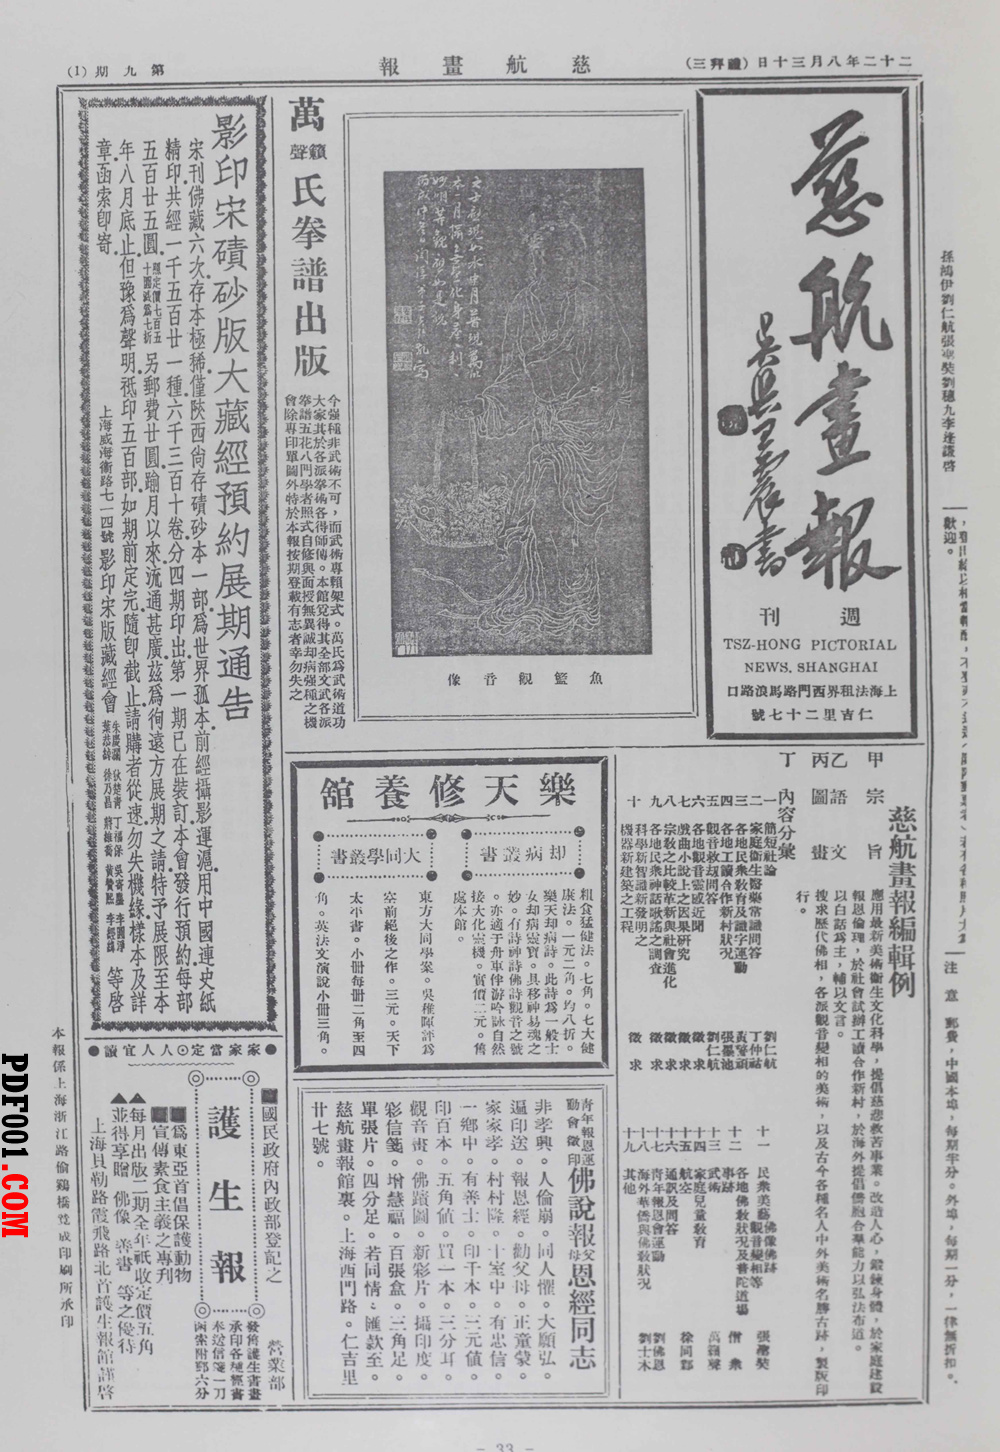 二十二年八月三十日(禮拜三)
慈航畫報
第九期(1)
慈航畫報
吳興王震書
週刊
TSZ-HONG PICTORIAL
NEWS. SHANGHAI
上海法租界西門路馬浪路口
仁吉里二十七號
魚籃觀音像
萬籟聲氏拳譜出版
今強種非武術不可，而武術專賴架式。萬氏爲武術道功
大家其於各派拳術各得師傳。本館覓得其全部文武各派
拳譜五花八門學者照式自修與面授無異誠却病強種之機
會除專印單圖外特於本報按期登載有志者幸勿失之
影印宋磧砂版大藏經預約展期通告
宋刊佛藏六次存本極稀僅陝西尙存磧砂本一部爲世界孤本前經攝影運滬用中國連史紙
精印共經一千五百廿一種六千三百十卷分四期印出第一期已在裝訂本會發行預約每部
五百廿五圓照定價七百五十圓祇爲七折另郵費廿圓踰月以來流通甚廣茲爲徇遠方展期之請特予展限至本
年八月底止但豫爲聲明祇印五百部如期前定完隨卽截止請購者從速勿失機緣樣本及詳
章函索卽寄
上海威海衞路七一四號影印宋版藏經會
朱慶瀾 狄楚青 丁福保
葉恭綽 徐乃昌 蔣維喬 黃贊熙 李經緯
等啓
慈航畫報編輯例
甲 宗旨
應用最新美術衞生文化科學，提倡慈悲救苦事業。改造人心，鍛鍊身體，於家庭建設
報恩倫理，於社會試辦工讀合作新村，於海外提倡僑胞合羣能力以弘法布道。
乙 語文
以白話爲主，輔以文言。
丙 圖畫
搜求歷代佛相，各派觀音變相的美術，以及古今各種名人中外美術名勝古跡，製版印
行。
丁 內容分彙
一 簡短社論 劉仁航
二 家庭衞生醫藥常識問答 丁仲祜
三 各地民衆敎育及識字運動
四 各地工讀合作新村狀況 張墨池
五 觀音救刼問答 劉仁航
六 各地觀音靈感近聞 徵求
七 戲曲小說上之因果研究 徵求
八 宗敎之比較革新與社會進化 徵求
九 各地民衆神話歌謠之調查 徵求
十 科學新智識新發明之
機器新建築之工程 徵求
十一 民衆美藝佛像佛跡
觀音變相等 張聿奘
十二 各地佛敎狀況及普陀道場
事跡 僧衆
十三 武術 萬籟聲
十四 家庭兒童敎育
十五 航空 徐同鄴
十六 通訊及問答
十七 靑年報恩會運動 劉佛恩
十八 海外華僑與佛敎狀況 劉士木
十九 其他
樂天修養館
却病叢書
粗食猛健法。七角。七大健
康法。一元二角。均八折。
樂天却病詩。此詩爲一般士
女却病靈寶。具移神易魂之
妙。有詩神詩佛詩觀音之號
。亦適于舟車伴游吟詠自然
接大化靈機。實價二元。售
處本館。
大同學叢書
東方大同學案。吳稚暉評爲
空前絕後之作。三元。天下
太平書。小册每册二角至四
角。英法文演說小册三角。
靑年報恩運動會徵印
佛說報父母恩經同志
非孝興。人倫崩。同人懼。大願弘。
逼印送。報恩經。勸父母。正童蒙。
家家孝。村村隆。十室中。有忠信。
一鄉中。有善士。印千本。三元値。
印百本。五角値。買一本。三分耳。
觀音畫。佛蹟圖。新彩片。攝印度。
彩信箋。增慧福。百張盒。三角足。
單張片。四分足。若同情。匯款至。
慈航畫報館裏。上海西門路。仁吉里
廿七號。
●家家當定⊙人人宜讀●
護生報
國民政府內政部登記之
爲東亞首倡保護動物
宣傳素食主義之專刊
每月出版二期全年祇收定價五角
並得享贈 佛像 善書 等之優待
上海貝勒路霞飛路北首護生報館謹啓
營業部
發售護生書畫
承印各種經書
奉送信箋一刀
函索附郵六分
本報係上海浙江路偷鷄橋競成印刷所承印
歡迎。
注意 郵費，中國本埠，每期半分。外埠，每期一分，一律無折扣。
- 33 -
PDF001.COM